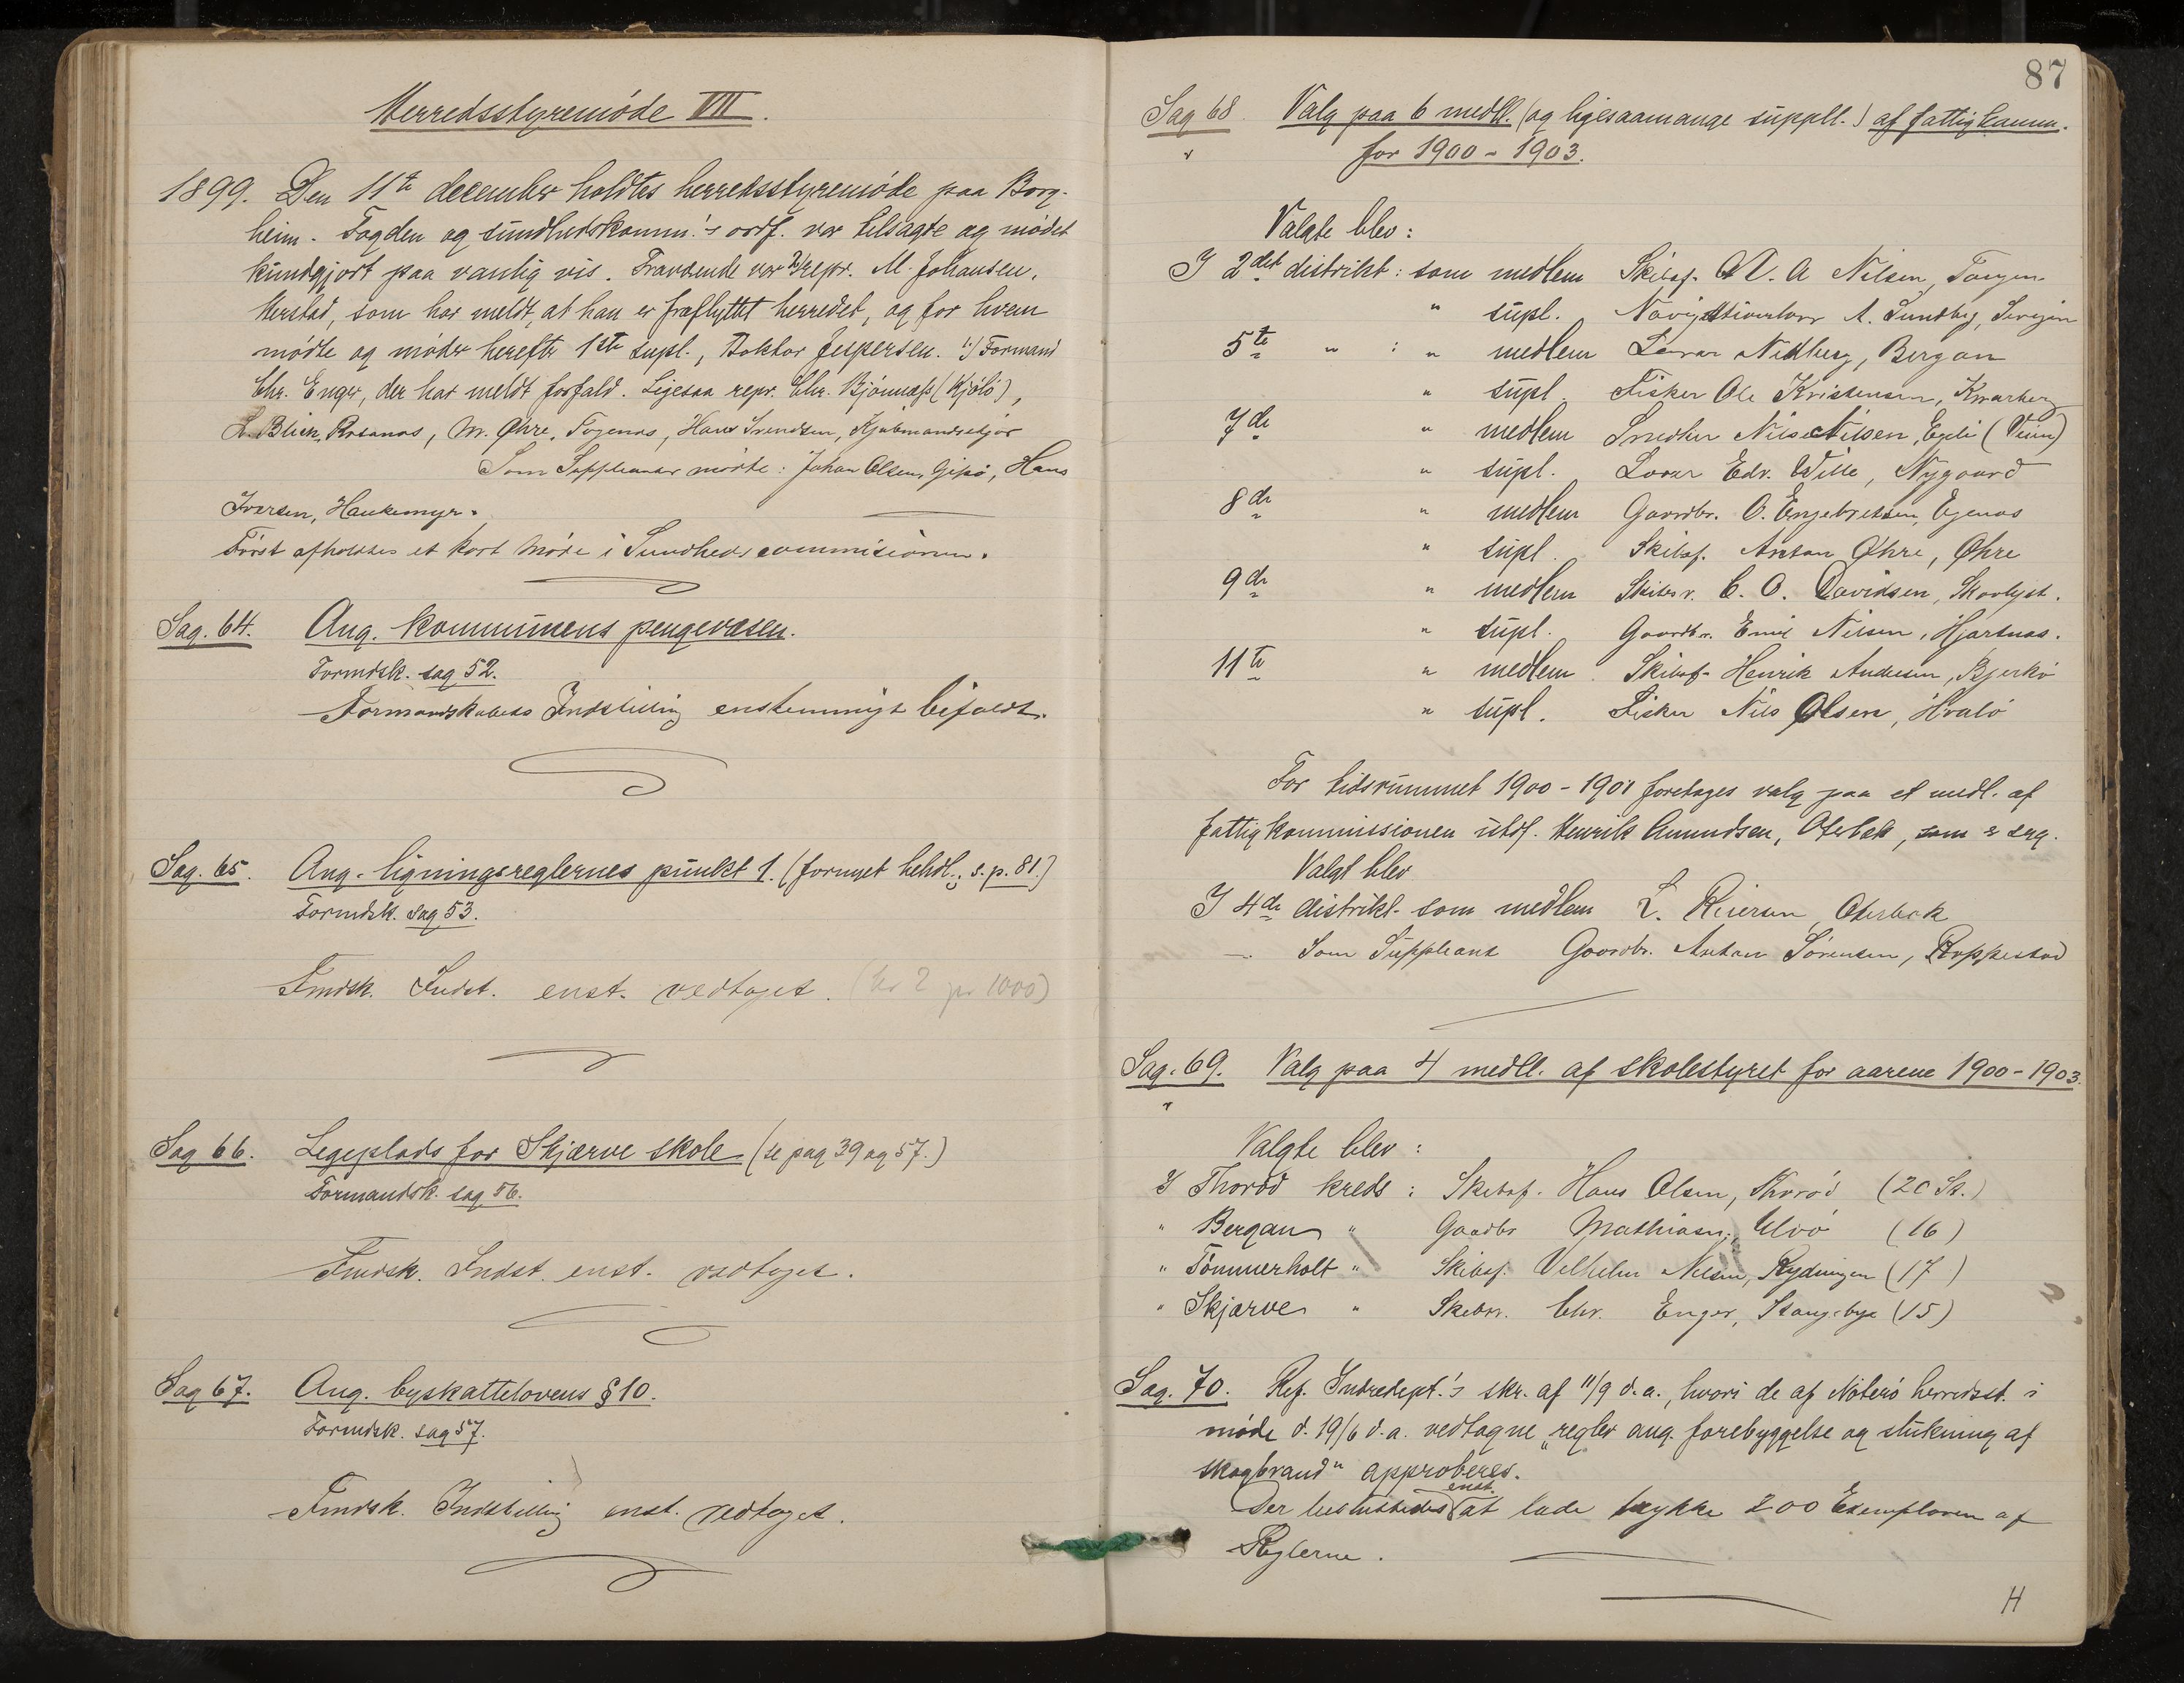 Herredsstyremöde VII.
1899. Den 11te december holdtes herredsstyremöde paa Borg-
heim. Fogden og sundhedskomm.'s ordf. var tilsagte og mödet
kundgjort paa vanlig vis. Fraværende var 2/ repr. M. Johansen,
Herstad, som har meldt, at han er fraflyttet herredet, og for hvem
mödte og möder herefter 1ste supl., Doktor Jespersen. 1/ Formand
Chr. Enger, der har meldt forfald. Ligesaa repr. Chr. Bjönnæss (Kjölö),
L. Blich, Rosanas, M. Øhre, Hans Svendsen,
Som Suppleanter mödte: Johan Olsen, Gipö, Hans
Iversen, Haukemyr.
Först afholdtes et kort Möde i Sundhedscommisionen.
Sag. 64. Ang. kommunens pengevæsen.
Formdsk. sag 52.
Formandskabets Indstilling enstemmigt bifaldt.
Sag. 65. Ang. ligningsreglernes punkt 1. (fornyet behdl.; s. p. 81.)
Formdsk. sag 53.
Fmdsk. Indst. enst. vedtaget. (kr 2 pr 1000)
Sag 66. Legeplads for Skjærve skole (se pag 39 og 57.)
Formandsk. sag 56.
Fmdsk. Indst. enst. vedtaget.
Sag 67. Ang. byskattelovens § 10.
Formdsk. sag 57.
Fmdsk. Indstilling enst. vedtaget.
87
Sag 68. Valg paa 6 medll. (og ligesaamange suppll.) af fattigkomm.
for 1900 - 1903.
Valgte blev:
I 2det distrikt: som medlem Skibsf. A. Nilsen,
" supl. A. Sundby,
5te " : " medlem Nedberg, Bergan
" supl. Fisker Ole Kristensen,
7de " medlem Nils Nilsen, Egeli (Veien)
" supl. Edv. Wille, Nygaard
8de " medlem Gaardbr. O. Engebretsen, Egenæs
" supl. Skibsf. Anton Øhre, Øhre
9de " medlem Skibsr. C. O. Davidsen, Skovlyst.
" supl. Gaardbr. Emil Nilsen, Hjartnæs.
11te " medlem Skibsf. Henrik Andersen, Bjerkö
" supl. Fisker Nils Olsen, Hvalö
For tidsrummet 1900 - 1901 foretages valg paa et medl. af
fattigkommissionen istdf. Henrik Amundsen, Oterbæk, som er syg.
Valgt blev
I 4de distrikt som medlem L. Reiersen, Oterbæk
— Som Suppleant Gaardbr. Anton Sörensen, Roppestad
Sag. 69. Valg paa 4 medll. af skolestyret for aarene 1900 - 1903.
Valgte blev:
I Thoröd kreds: Skibsf. Hans Olsen, Thoröd (20 St.)
" Bergan " Gaardbr Mathiasen, Ulvö (16)
" Tömmerholt " Skibsf. Vilhelm Nilsen, Rydningen (17)
" Skjærve " Skibsr. Chr. Enger, Stangsbye (15)
Sag. 70. Ref. Indredept.'s skr. af 11/9 d. a., hvori de af Nöterö herredsst. i
möde d. 19/6 d. a. vedtagne „regler ang. forebyggelse og slukning af
skogbrand" approberes.
Der besluttedes enst. at lade trykke 200 Exemplarer af
Reglerne.
H